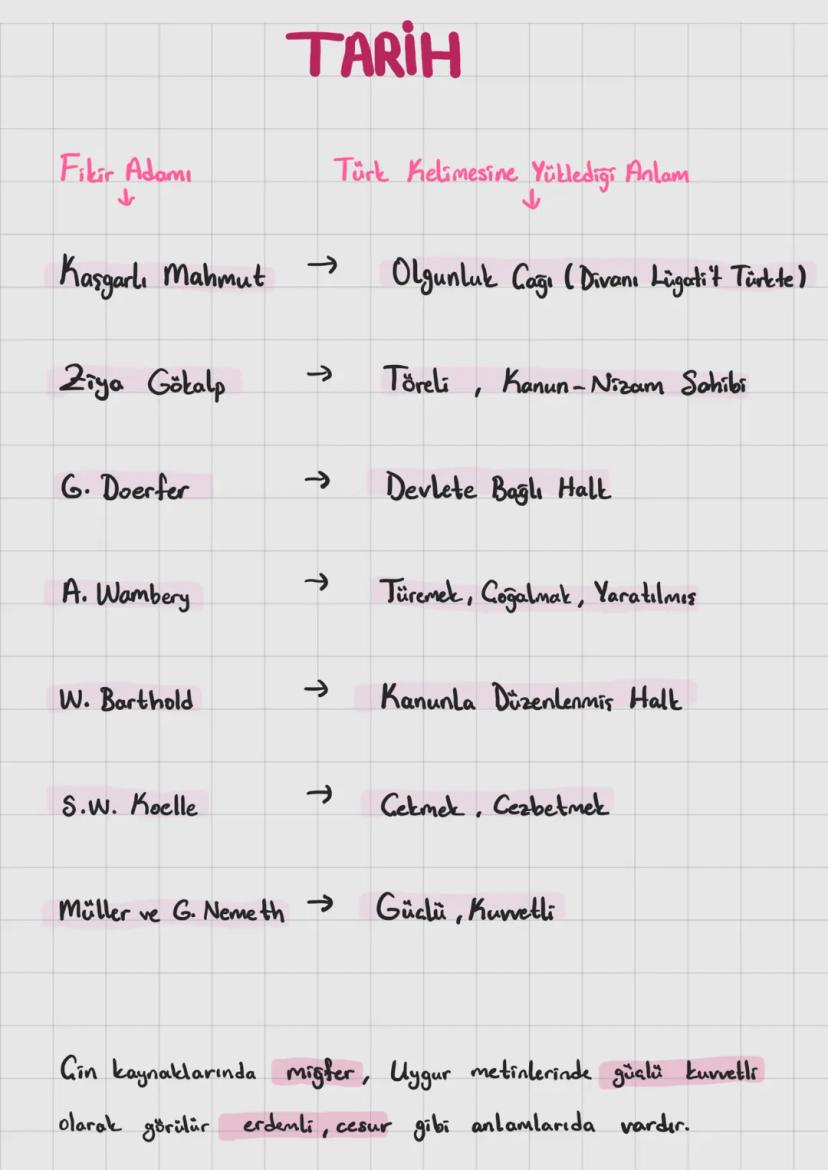 TARİH
Fikir Adamı Türk Kelimesine Yüklediği Anlam
↓ ↓
Kaşgarlı Mahmut → Olgunluk Çağı (Divanı Lügati't Türkte)
Ziya Gökalp → Töreli , Kanun-Nizam Sahibi
G. Doerfer → Devlete Bağlı Halk
A. Wambery → Türemek, Çoğalmak, Yaratılmış
W. Barthold → Kanunla Düzenlenmiş Halk
S.W. Koelle → Çekmek, Cezbetmek
Müller ve G. Nemeth → Güçlü, Kuvvetli
Çin kaynaklarında miğfer, Uygur metinlerinde güçlü kuvvetli
olarak görülür erdemli, cesur gibi anlamlarıda vardır.